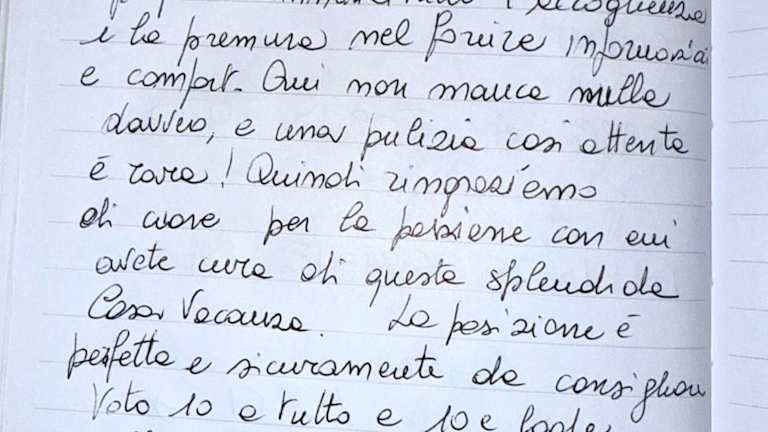 l'accoglienza
e la premura nel fornire informazioni
e comfort. Qui non manca nulla
davvero, e una pulizia così attenta
è rara! Quindi ringraziamo
di cuore per la passione con cui
avete cura di questa splendida
Casa Vacanza. La posizione è
perfetta e sicuramente da consigliare
Voto 10 a tutto e 10 e lode